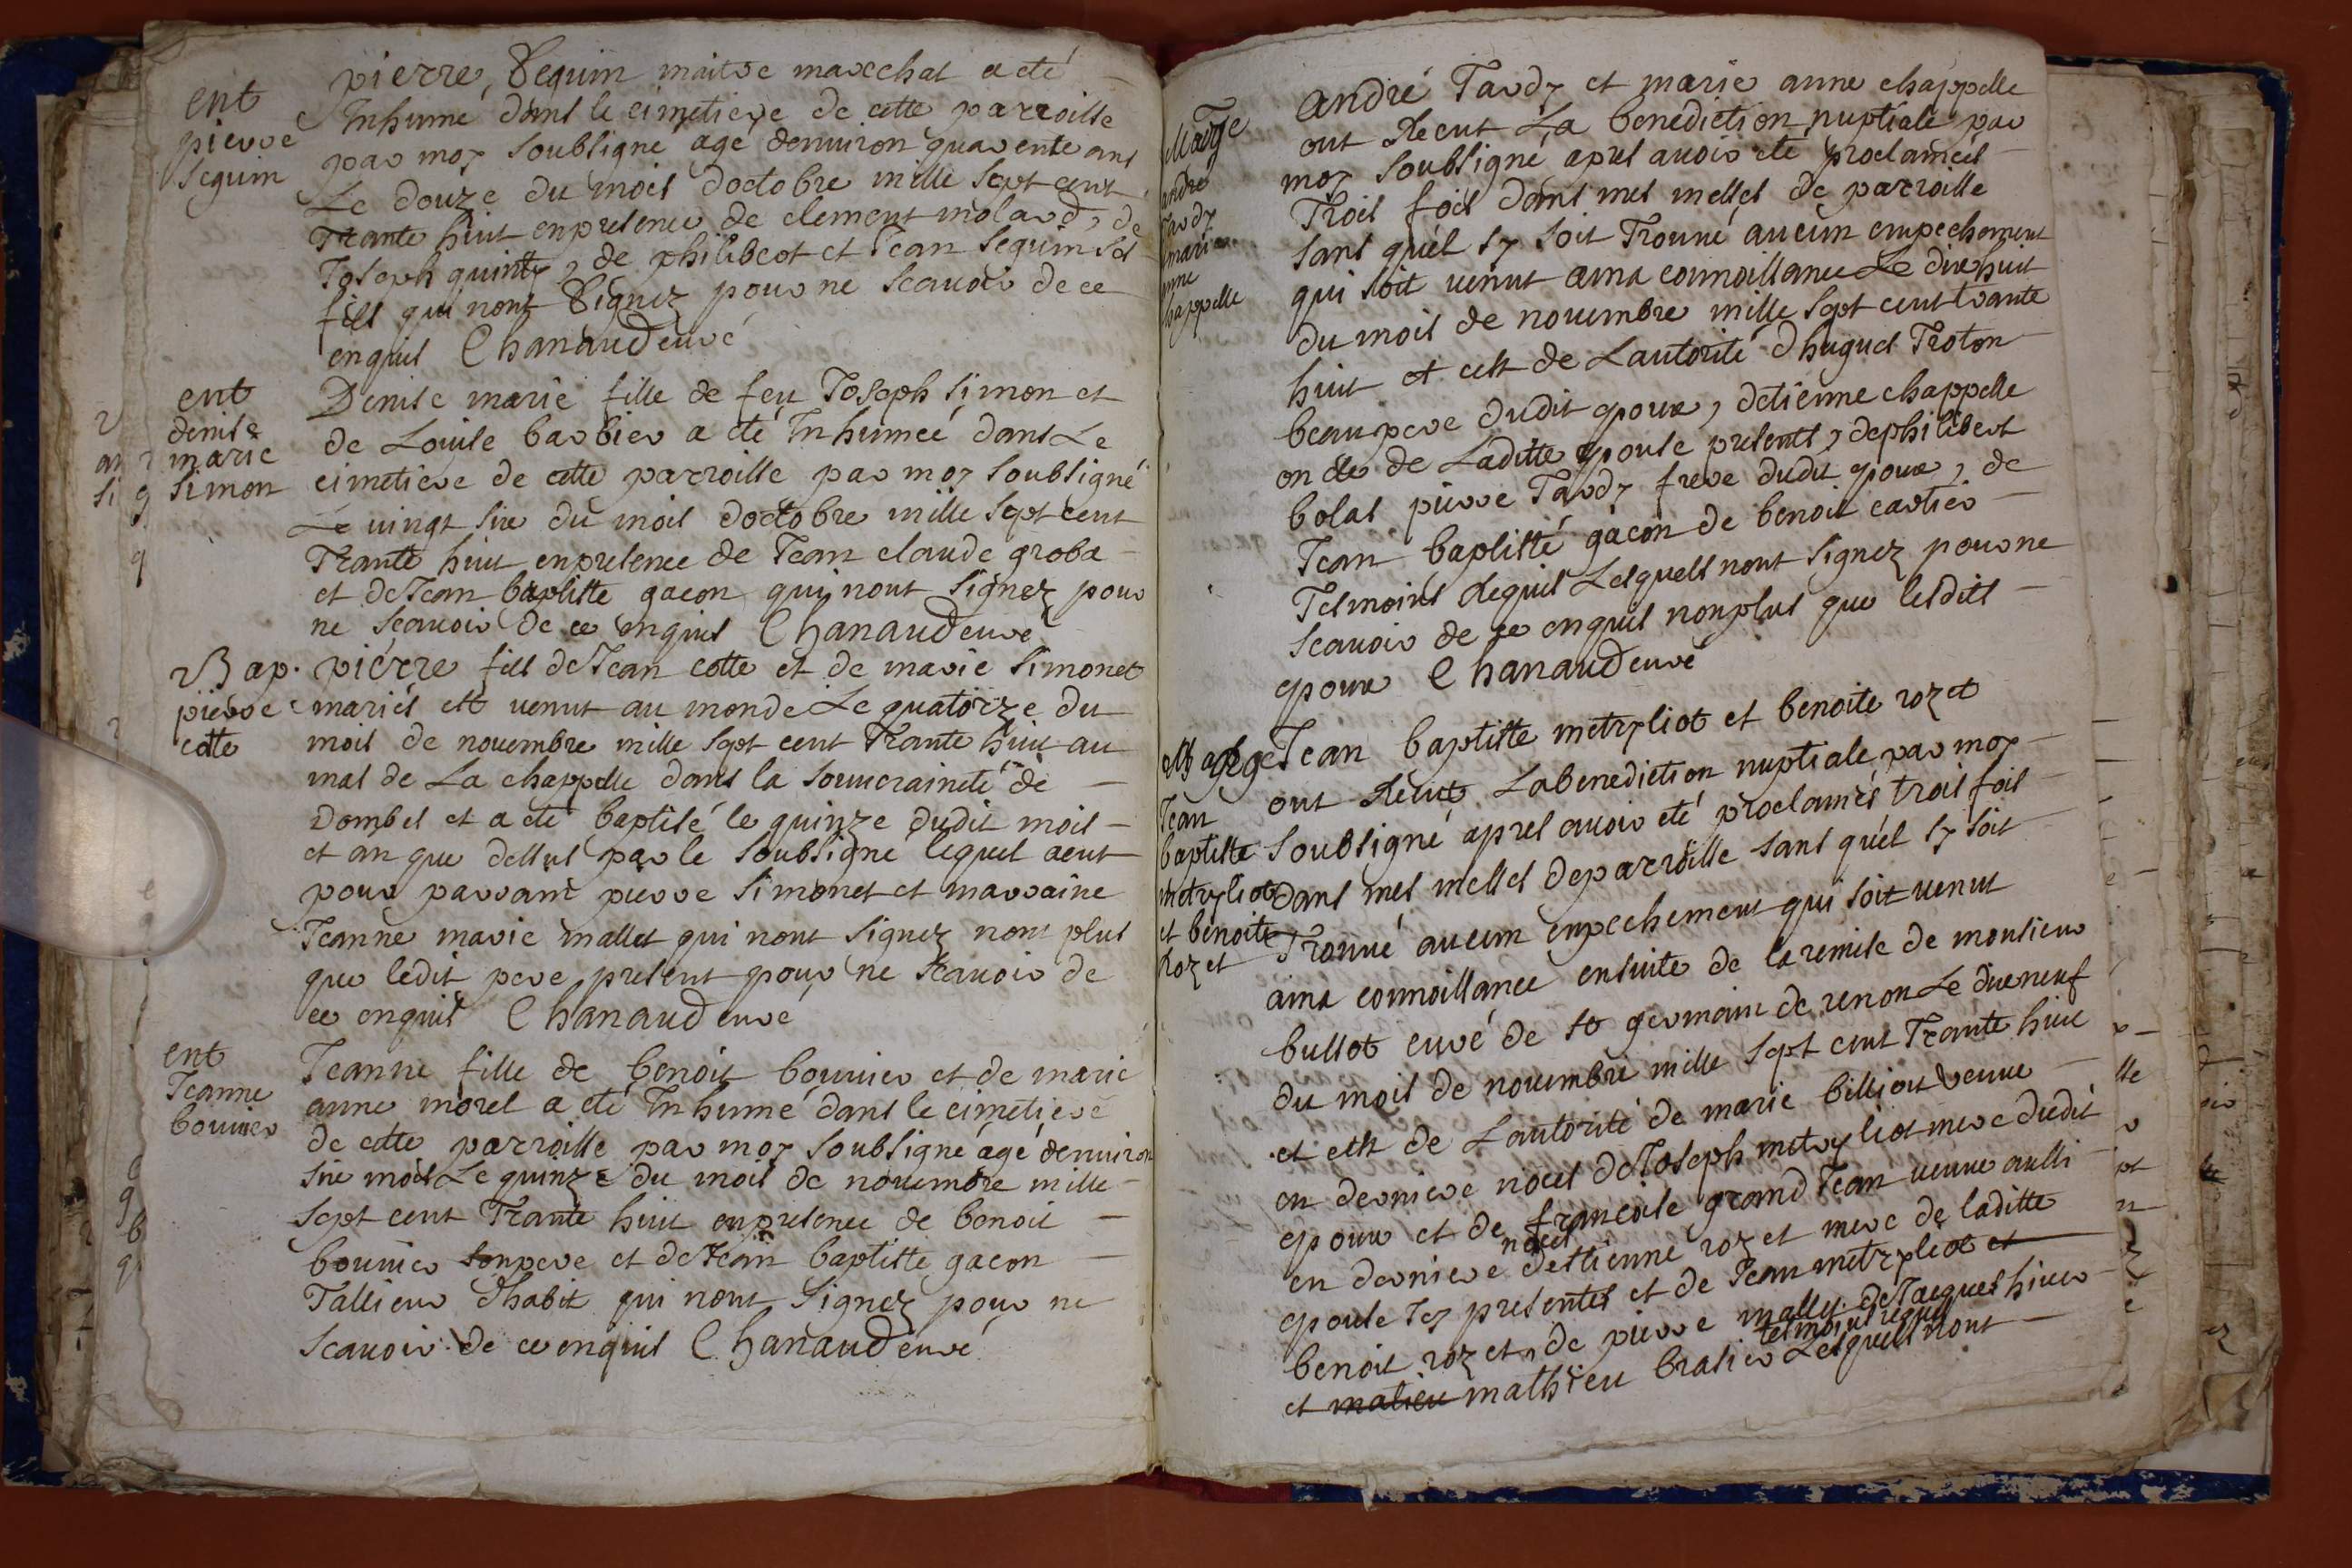 ent
pierre
seguin
pierre, Seguin maitre marechal a eté
Inhumé dans le cimetiere de cette parroisse
par moy soubsigné agé denuiron quarente ans
Le douze du mois doctobre mille sept cent
Trante huit enpresence de clement molard, de
Joseph quinty, de philibert et Jean seguin ses
fils qui nont Signez pour ne scauoir de ce
enquis Chanaud curé
ent
denise
marie
simon
Denise marie fille de feu Joseph simon et
de Louise barbier a eté Inhumeé dans Le
cimetiere de cette parroisse par moy soubsigné
Le uingt six du mois doctobre mille sept cent
Trante huit enpresence de Jean claude groba
et de Jean baptiste gacon qui nont signez pour
ne scauoir de ce enquis Chanaud curé
Bap.
pierre
cotte
pierre fils de Jean cotte et de marie simonet
mariés est uenut au monde Le quatorze du
mois de nouembre mille sept cent Trante huit au
mas de La chappelle dans la souueraineté de
Dombes et a eté baptisé le quinze dudit mois
et an que dessus par le soubsigné lequel aeut
pour parrain pierre simonet et marraine
Jeanne marie mallet qui nont signez non plus
que ledit pere present pour ne scauoir de
ce enquis Chanaud curé
ent
Jeanne
bouuier
Jeanne fille de benoit bouuier et de marie
anne morel a eté Inhumé dans le cimetiere
de cette parroisse par moy soubsigné ágé denuiron
six mois Le quinze du mois de nouembre mille
sept cent Trante huit enpresence de benoit
bouuier sonpere et de Jean baptiste gacon
Tallieur dhabit qui nont signez pour ne
scauoir de ce enquis Chanaud curé
Marge
andre
Tardy
marie
anne
chappelle
andré Tardy et marie anne chappelle
ont Recut La benediction nuptiale par
moy soubsigné apres auoir eté proclameés
Trois fois dans mes messes de parroisse
sans quel sy soit Trouué aucun empechement
qui soit uenut ama connoissance Le dix huit
du mois de nouembre mille sept cent trante
huit et cest de Lautorité dhugues Troton
beaupere dudit epoux, detienne chappelle
oncle de Laditte epouse presents, dephilibert
bolas pierre Tardy frere dudit epoux, de
Jean baptisté gacon de benoit cartier
Tesmoins Requis Lesquels nont signez pour ne
scauoir de ce enquis nonplus que lesdits
epoux Chanaud curé
Mage
Jean
baptiste
metryliot
et benoite
rozet
Jean baptiste metryliot et benoite rozet
ont Recut Labenediction nuptiale par moy
soubsigné apres auoir eté proclamés trois fois
dans mes messes deparroisse sans quel sy soit
Trouué aucun enpechement qui soit uenut
ama connoissance ensuite de la remise de monsieur
bullot curé de st germain de renon Le dixneuf
du mois de nouembre mille sept cent Trante huit
et est de Lautorité de marie billiou veuue
en derniere noces de Joseph metryliot mere dudit
epoux et de francoise grand Jean ueuue aussi
en derniere noces destienne rozet mere de laditte
epouse Tes presentes et de Jean metryliot et
benoit rozet, de pierre mallet de Jacques hiuer
et matieu mathieu brasier tesmoins requis Lesquels nont